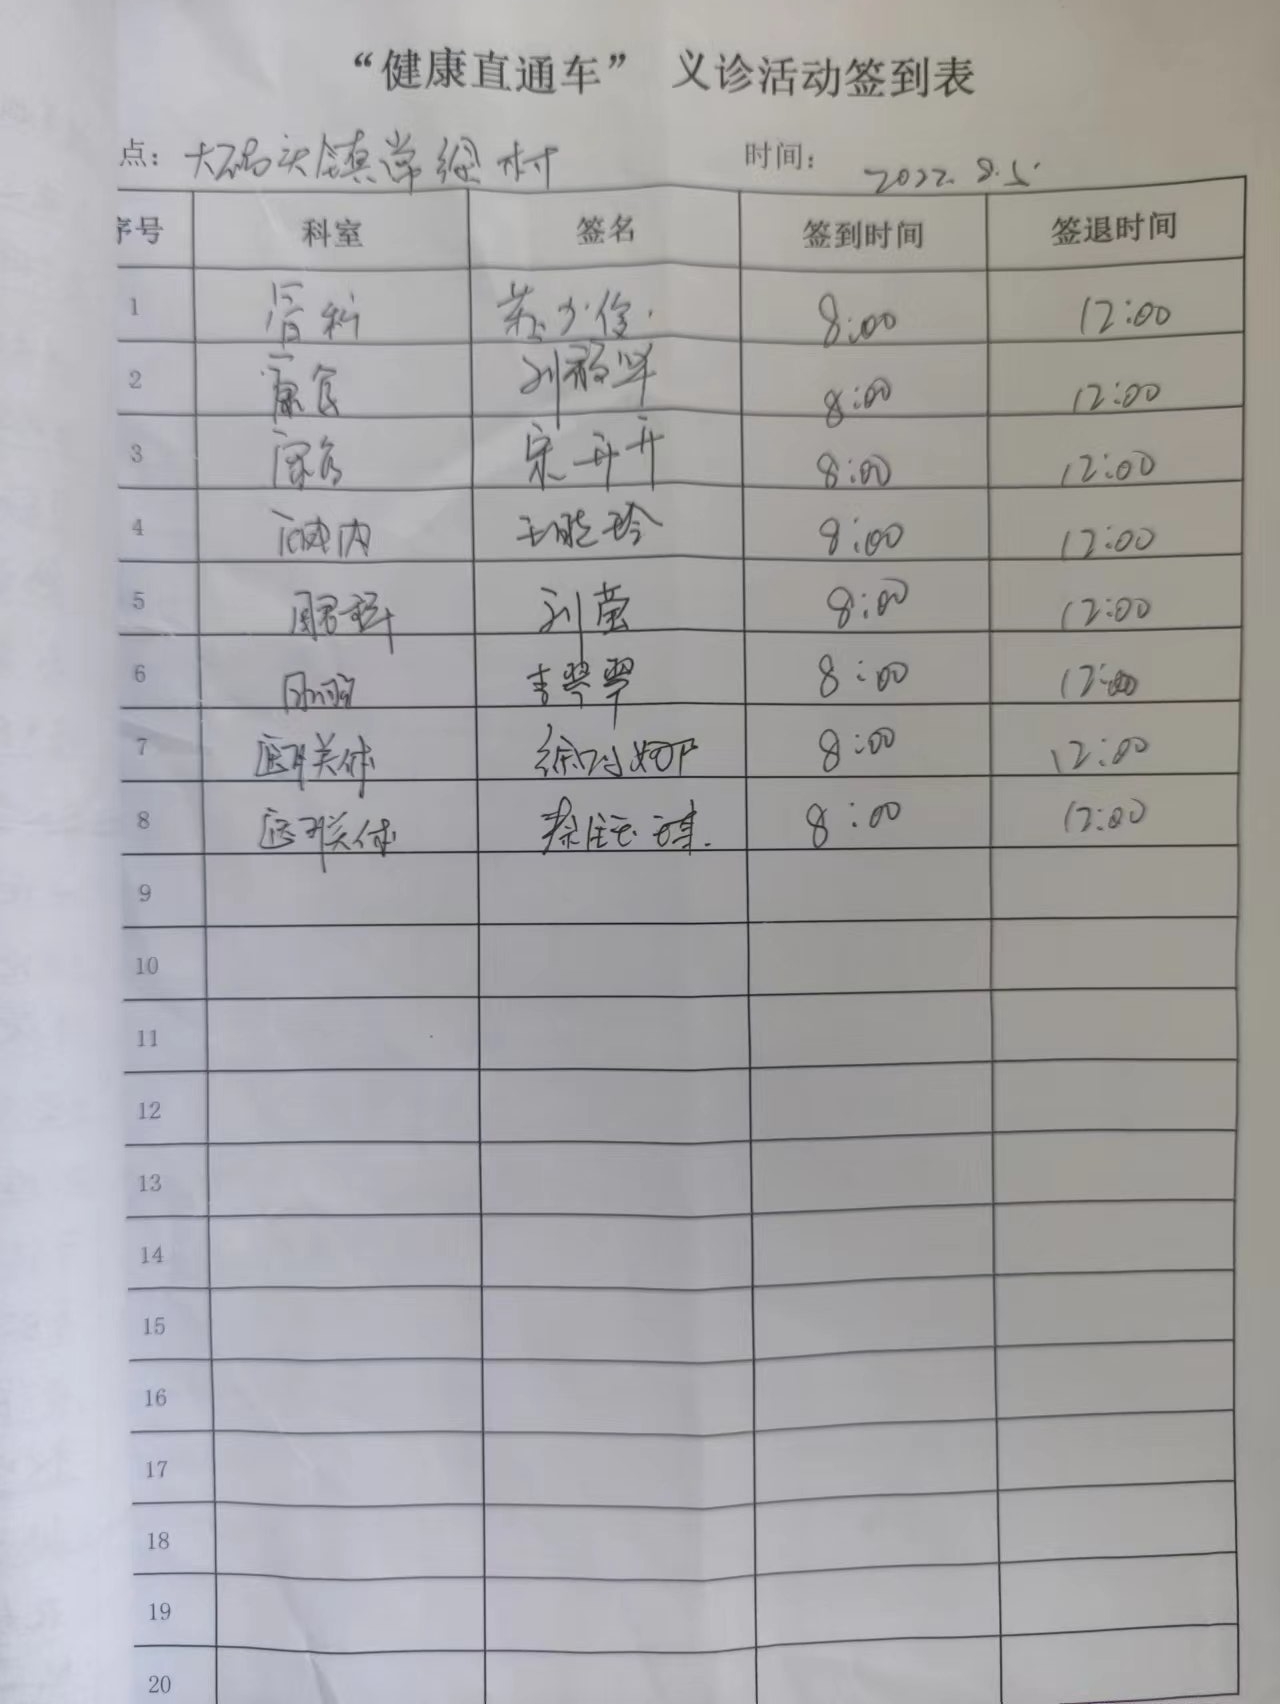 “健康直通车” 义诊活动签到表
点: 大码头镇常 村 时间: 2022.8.5
序号 科室 签名 签到时间 签退时间
1 骨科 8:00 12:00
2 刘敬军 8:00 12:00
3 宋丹丹 8:00 12:00
4 内 王晓玲 8:00 12:00
5 刘莹 8:00 12:00
6 李翠翠 8:00 12:00
7 医联体 8:00 12:00
8 医联体 8:00 12:00
9
10
11
12
13
14
15
16
17
18
19
20